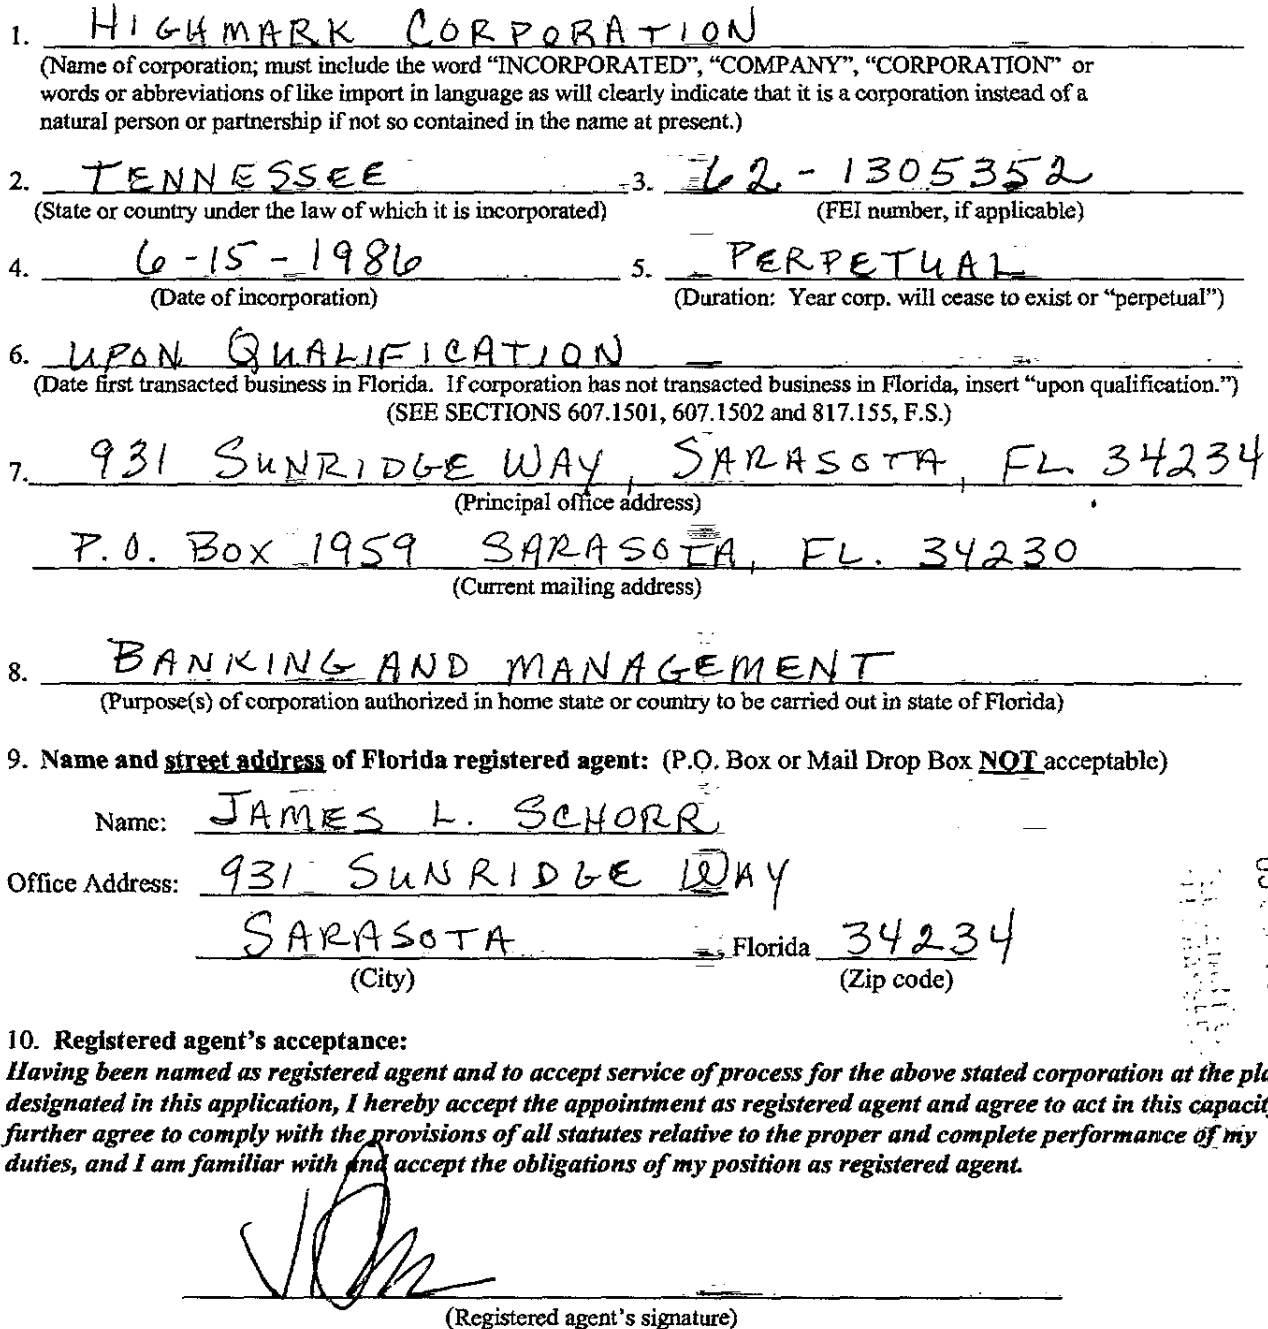 1. HIGHMARK CORPORATION
(Name of corporation; must include the word “INCORPORATED”, “COMPANY”, “CORPORATION” or
words or abbreviations of like import in language as will clearly indicate that it is a corporation instead of a
natural person or partnership if not so contained in the name at present.)
2. TENNESSEE 3. 62-1305352
(State or country under the law of which it is incorporated) (FEI number, if applicable)
4. 6-15-1986 5. PERPETUAL
(Date of incorporation) (Duration: Year corp. will cease to exist or “perpetual”)
6. UPON QUALIFICATION
(Date first transacted business in Florida. If corporation has not transacted business in Florida, insert “upon qualification.”)
(SEE SECTIONS 607.1501, 607.1502 and 817.155, F.S.)
7. 931 SUNRIDGE WAY, SARASOTA, FL. 34234
(Principal office address)
P.O. BOX 1959 SARASOTA, FL. 34230
(Current mailing address)
8. BANKING AND MANAGEMENT
(Purpose(s) of corporation authorized in home state or country to be carried out in state of Florida)
9. Name and street address of Florida registered agent: (P.O. Box or Mail Drop Box NOT acceptable)
Name: JAMES L. SCHORR
Office Address: 931 SUNRIDGE WAY
SARASOTA, Florida 34234
(City) (Zip code)
10. Registered agent’s acceptance:
Having been named as registered agent and to accept service of process for the above stated corporation at the pla
designated in this application, I hereby accept the appointment as registered agent and agree to act in this capacit
further agree to comply with the provisions of all statutes relative to the proper and complete performance of my
duties, and I am familiar with and accept the obligations of my position as registered agent.
(Registered agent’s signature)